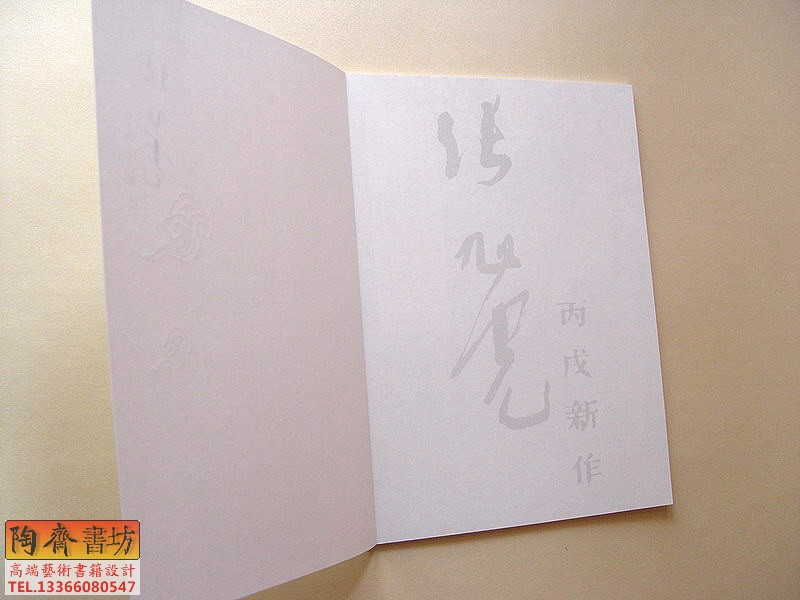 张
丙戌新作
陶齋書坊
高端藝術書籍設計
TEL.13366080547